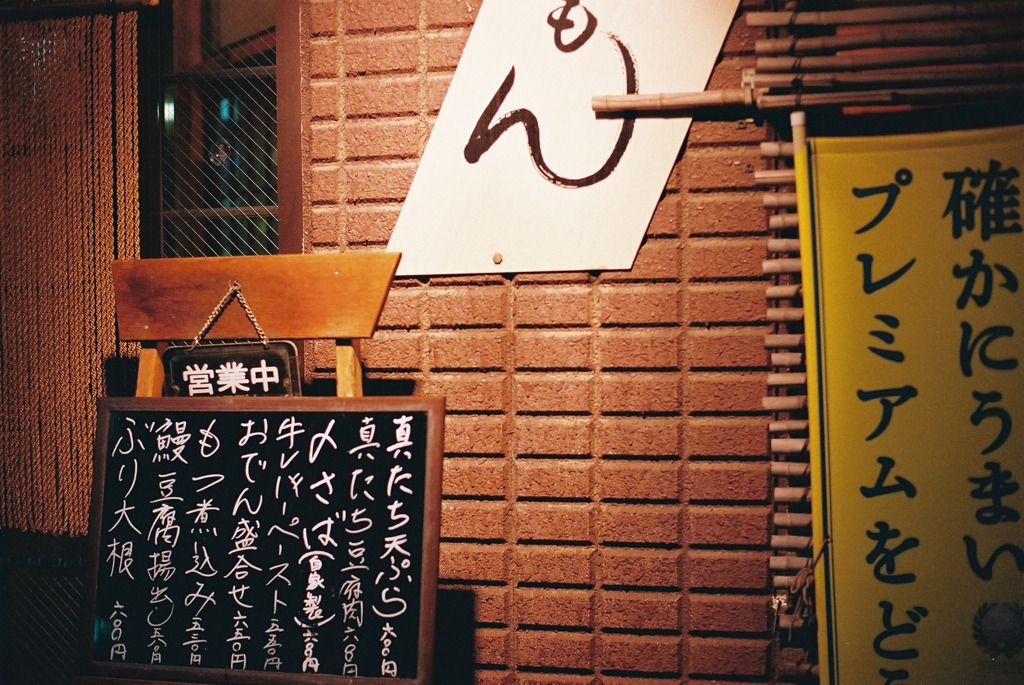 もん
営業中
真たち天ぷら 六〇〇円
真たち豆腐肉 六〇〇円
〆さば(自家製) 六〇〇円
牛レバーペースト 五五〇円
おでん盛合せ 六五〇円
もつ煮込み 五五〇円
鰻豆腐揚出し
ぶり大根 六〇〇円
確かにうまい
プレミアムをどう